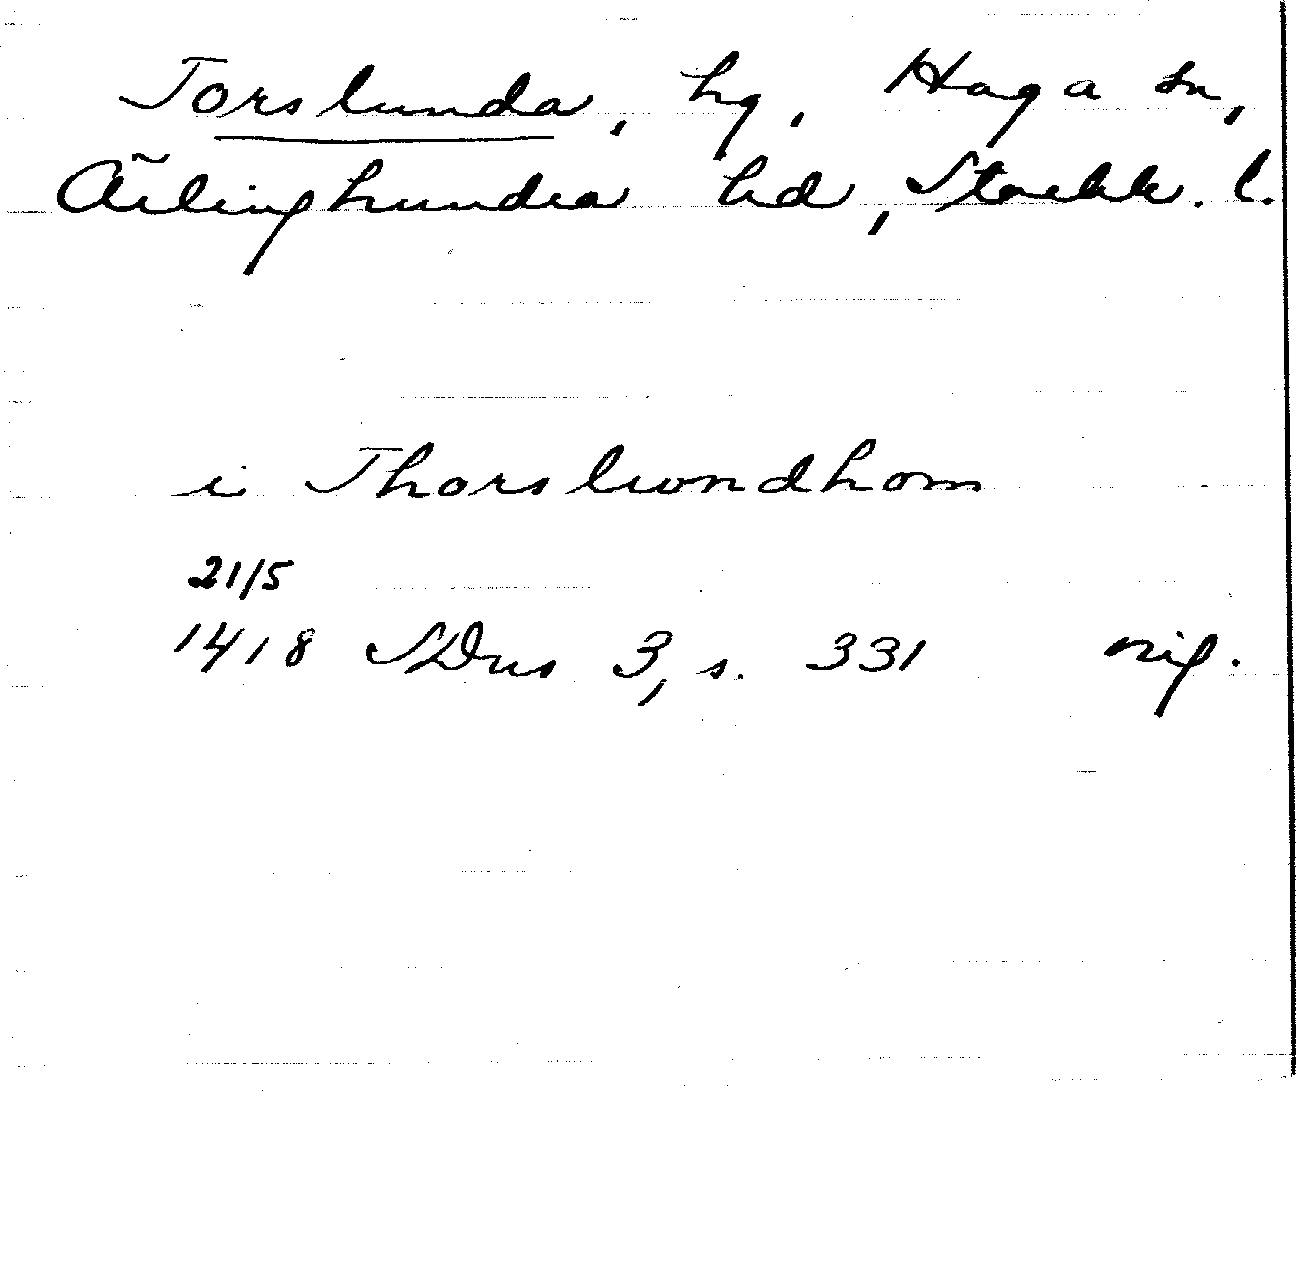 Torslunda, hg, Haga sn,
Ärlinghundra hd, Stockh. l.
i Thorslwndhom
21/5
1418 SDns 3, s. 331 orig.